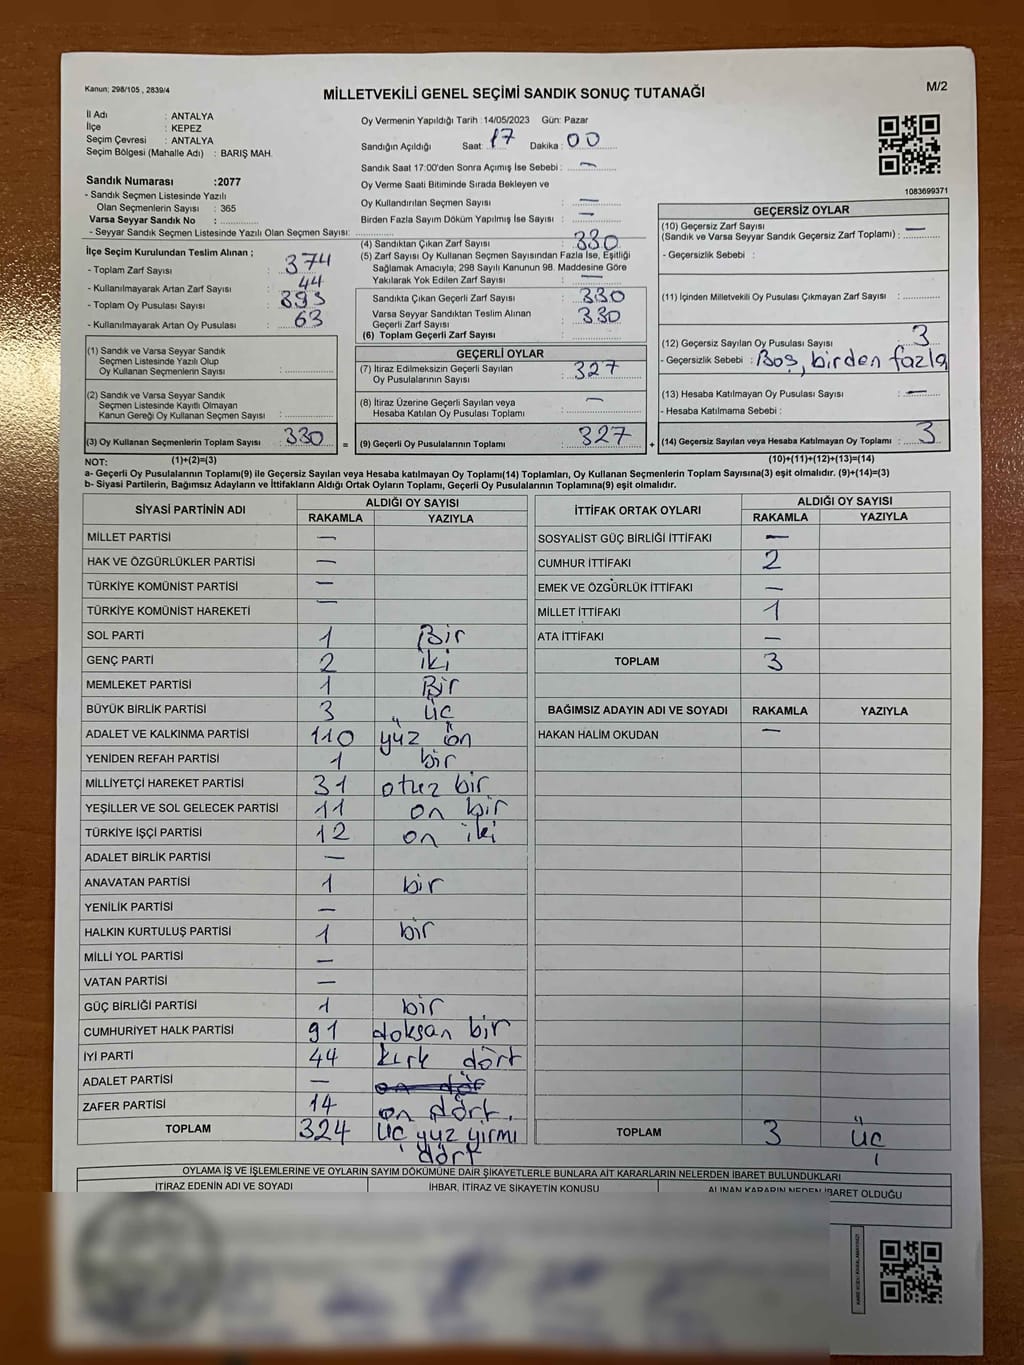 Kanun; 298/105 , 2839/4
MİLLETVEKİLİ GENEL SEÇİMİ SANDIK SONUÇ TUTANAĞI
M/2
İl Adı : ANTALYA
İlçe : KEPEZ
Seçim Çevresi : ANTALYA
Seçim Bölgesi (Mahalle Adı) : BARIŞ MAH.
Oy Vermenin Yapıldığı Tarih :14/05/2023 Gün: Pazar
Sandığın Açıldığı Saat: 17 Dakika : 00
Sandık Saat 17:00'den Sonra Açımış İse Sebebi : —
Oy Verme Saati Bitiminde Sırada Bekleyen ve
Oy Kullandırılan Seçmen Sayısı : —
Birden Fazla Sayım Döküm Yapılmış İse Sayısı : —
1083699371
Sandık Numarası :2077
- Sandık Seçmen Listesinde Yazılı
Olan Seçmenlerin Sayısı : 365
Varsa Seyyar Sandık No :
- Seyyar Sandık Seçmen Listesinde Yazılı Olan Seçmen Sayısı:
İlçe Seçim Kurulundan Teslim Alınan ;
- Toplam Zarf Sayısı : 374
- Kullanılmayarak Artan Zarf Sayısı : 44
- Toplam Oy Pusulası Sayısı : 393
- Kullanılmayarak Artan Oy Pusulası : 63
(1) Sandık ve Varsa Seyyar Sandık
Seçmen Listesinde Yazılı Olup
Oy Kullanan Seçmenlerin Sayısı :
(2) Sandık ve Varsa Seyyar Sandık
Seçmen Listesinde Kayıtlı Olmayan
Kanun Gereği Oy Kullanan Seçmen Sayısı :
(3) Oy Kullanan Seçmenlerin Toplam Sayısı : 330
(1)+(2)=(3)
(4) Sandıktan Çıkan Zarf Sayısı : 330
(5) Zarf Sayısı Oy Kullanan Seçmen Sayısından Fazla İse, Eşitliği
Sağlamak Amacıyla; 298 Sayılı Kanunun 98. Maddesine Göre
Yakılarak Yok Edilen Zarf Sayısı : —
Sandıkta Çıkan Geçerli Zarf Sayısı : 330
Varsa Seyyar Sandıktan Teslim Alınan
Geçerli Zarf Sayısı : 330
(6) Toplam Geçerli Zarf Sayısı :
GEÇERLİ OYLAR
(7) İtiraz Edilmeksizin Geçerli Sayılan
Oy Pusulalarının Sayısı : 327
(8) İtiraz Üzerine Geçerli Sayılan veya
Hesaba Katılan Oy Pusulası Toplamı : —
= (9) Geçerli Oy Pusulalarının Toplamı : 327 +
GEÇERSİZ OYLAR
(10) Geçersiz Zarf Sayısı
(Sandık ve Varsa Seyyar Sandık Geçersiz Zarf Toplamı) : —
- Geçersizlik Sebebi :
(11) İçinden Milletvekili Oy Pusulası Çıkmayan Zarf Sayısı :
(12) Geçersiz Sayılan Oy Pusulası Sayısı : 3
- Geçersizlik Sebebi : Boş, birden fazla
(13) Hesaba Katılmayan Oy Pusulası Sayısı : —
- Hesaba Katılmama Sebebi :
(14) Geçersiz Sayılan veya Hesaba Katılmayan Oy Toplamı : 3
(10)+(11)+(12)+(13)=(14)
NOT:
a- Geçerli Oy Pusulalarının Toplamı(9) ile Geçersiz Sayılan veya Hesaba katılmayan Oy Toplamı(14) Toplamları, Oy Kullanan Seçmenlerin Toplam Sayısına(3) eşit olmalıdır. (9)+(14)=(3)
b- Siyasi Partilerin, Bağımsız Adayların ve İttifakların Aldığı Ortak Oyların Toplamı, Geçerli Oy Pusulalarının Toplamına(9) eşit olmalıdır.
SİYASİ PARTİNİN ADI ALDIĞI OY SAYISI
RAKAMLA YAZIYLA
MİLLET PARTİSİ —
HAK VE ÖZGÜRLÜKLER PARTİSİ —
TÜRKİYE KOMÜNİST PARTİSİ —
TÜRKİYE KOMÜNİST HAREKETİ —
SOL PARTİ 1 Bir
GENÇ PARTİ 2 iki
MEMLEKET PARTİSİ 1 Bir
BÜYÜK BİRLİK PARTİSİ 3 üç
ADALET VE KALKINMA PARTİSİ 110 yüz on
YENİDEN REFAH PARTİSİ 1 bir
MİLLİYETÇİ HAREKET PARTİSİ 31 otuz bir
YEŞİLLER VE SOL GELECEK PARTİSİ 11 on bir
TÜRKİYE İŞÇİ PARTİSİ 12 on iki
ADALET BİRLİK PARTİSİ —
ANAVATAN PARTİSİ 1 bir
YENİLİK PARTİSİ —
HALKIN KURTULUŞ PARTİSİ 1 bir
MİLLİ YOL PARTİSİ —
VATAN PARTİSİ —
GÜÇ BİRLİĞİ PARTİSİ 1 bir
CUMHURİYET HALK PARTİSİ 91 doksan bir
İYİ PARTİ 44 kırk dört
ADALET PARTİSİ — on dör
ZAFER PARTİSİ 14 on dört.
TOPLAM 324 üç yüz yirmi
dört
İTTİFAK ORTAK OYLARI ALDIĞI OY SAYISI
RAKAMLA YAZIYLA
SOSYALİST GÜÇ BİRLİĞİ İTTİFAKI —
CUMHUR İTTİFAKI 2
EMEK VE ÖZGÜRLÜK İTTİFAKI —
MİLLET İTTİFAKI 1
ATA İTTİFAKI —
TOPLAM 3
BAĞIMSIZ ADAYIN ADI VE SOYADI RAKAMLA YAZIYLA
HAKAN HALİM OKUDAN —
TOPLAM 3 üç
OYLAMA İŞ VE İŞLEMLERİNE VE OYLARIN SAYIM DÖKÜMÜNE DAİR ŞİKAYETLERLE BUNLARA AİT KARARLARIN NELERDEN İBARET BULUNDUKLARI
İTİRAZ EDENİN ADI VE SOYADI İHBAR, İTİRAZ VE ŞİKAYETİN KONUSU ALINAN KARARIN NEDEN İBARET OLDUĞU